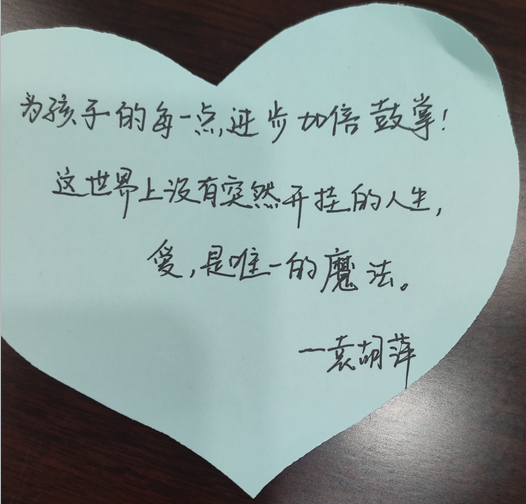 为孩子的每一点进步加倍鼓掌！
这世界上没有突然开挂的人生，
爱，是唯一的魔法。
一袁胡萍